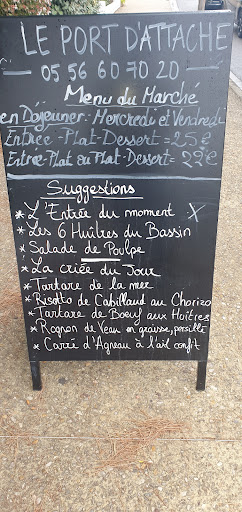 LE PORT D'ATTACHE
05 56 60 70 20
Menu du Marché
en Déjeuner - Mercredi et Vendredi
Entrée - Plat - Dessert = 25€
Entrée-Plat ou Plat-Dessert = 22€
Suggestions
* L'Entrée du moment X
* Les 6 Huîtres du Bassin
* Salade de Poulpe
* La criée du Jour
* Tartare de la mer
* Risotto de Cabillaud au Chorizo
* Tartare de Boeuf aux Huîtres
* Rognon de Veau en graisse, persillé
* Carré d'Agneau à l'ail confit